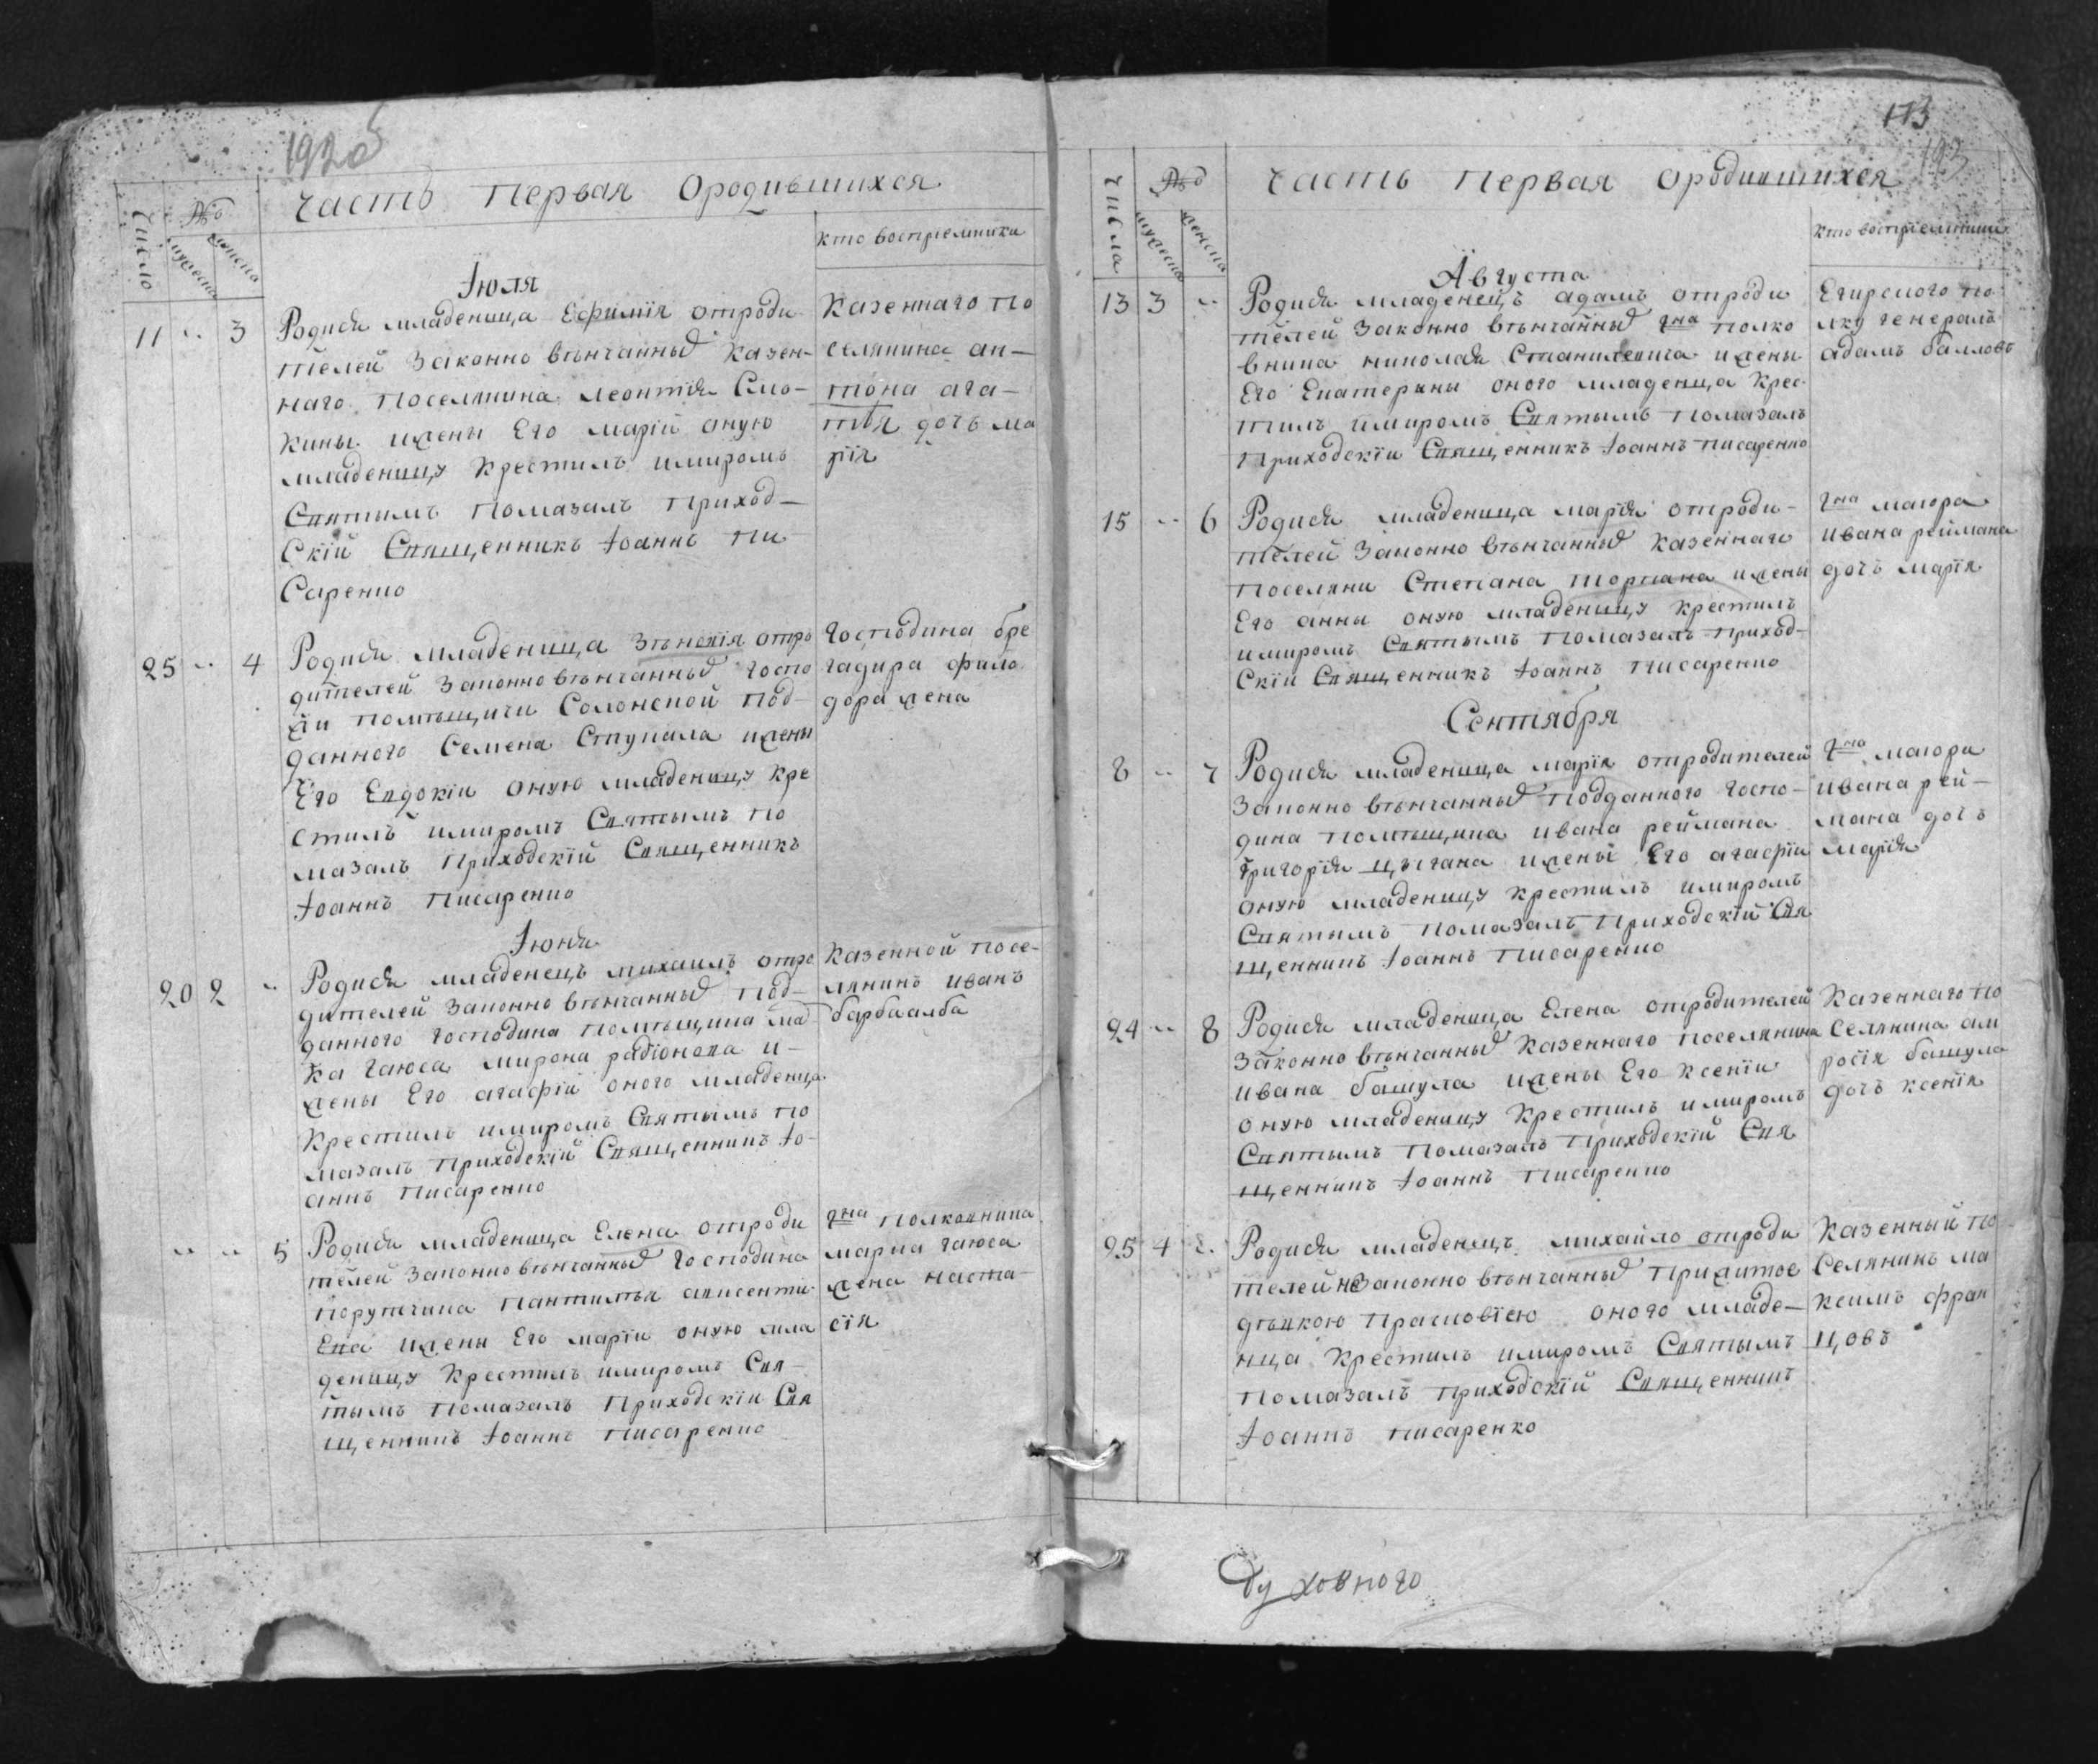 192об
часть первая ородившихся
число
№д
мужеска
женска
кто воспріемники
Іюля
11 3
Родися младеница Ефимія отроди
телей законно вѣнчанныд казен-
наго поселянина леонтія Смо-
кины ижены Его маріи оную
младеницу крестилъ имиромъ
Святымъ помазалъ приход-
скій Священникъ Іоаннъ пи
саренко
казеннаго по
селянина ан-
тона ага-
дочь ма
рія
25 4
Родися младеница отро
дителей законно вѣнчанныд госпо
жи помѣщичи Солонской под-
данного Семена Ступака ижены
Его Евдокіи оную младеницу кре
стилъ имиромъ Святымъ по
мазалъ приходскій Священникъ
Іоаннъ писаренко
господина бре
гадира фило
дора жена
Іюня
20 2
Родися младенецъ михаилъ отро
дителей законно вѣнчанныд под-
данного господина помѣщика ма
ка гаюса мирона радіонова и-
жены Его агафіи оного младенца
крестилъ имиромъ Святымъ по
мазалъ приходскій Священникъ Іо-
аннъ писаренко
казенной посе-
лянинъ иванъ
барбаалба
5
Родися младеница Елена отроди
телей законно вѣнчанныд господина
поручечика авксенти
Ева ижены Его маріи оную мла
деницу крестилъ имиромъ Свя-
тымъ помазалъ приходскіи Свя
щенникъ Іоаннъ писаренко
гна полковника
марка гаюса
жена наста-
сія
173
193
числа
№д
мужеска
женска
часть первая ородившихся
кто воспріемники
Августа
13 3
Родися младенецъ адамъ отроди
телей законно вѣнчанныд гна полко
вника николая Станилевича ижены
Его Екатерины оного младенца крес-
тилъ имиромъ Святымъ помазалъ
приходскіи Священникъ Іоаннъ писаренко
Егирского по
лку генералъ
адамъ балловъ
15 6
Родися младеница марія отроди-
телей законно вѣнчанныд казеннаго
поселяни Степана торпана ижены
Его анны оную младеницу крестилъ
имиромъ Святымъ помазалъ приход-
скіи Священникъ Іоаннъ писаренко
гна маюра
ивана реймана
дочь марія
Сентября
8 7
Родися младеница марія отродителей
законно вѣнчанныд подданного госпо-
дина помѣщика ивана реймана
григорія цыгана ижены Его агафіи
оную младеницу крестилъ имиромъ
Святымъ помазалъ приходскій Свя
щенникъ Іоаннъ писаренко
гна маюра
ивана рей-
мана дочь
марія
24 8
Родися младеница Елена отродителей
законно вѣнчанныд казеннаго поселянина
ивана башула ижены Его ксеніи
оную младеницу крестилъ имиромъ
Святымъ помазалъ приходскій Свя
щенникъ Іоаннъ писаренко
казеннаго по
селянина ам
росія башула
дочь ксенія
25 4
Родися младенецъ михайло отроди
телей незаконно вѣнчанныд прижитое
дѣвкою прасковіею оного младе-
нца крестилъ имиромъ Святымъ
помазалъ приходскій Священникъ
Іоаннъ писаренко
казенный по
селянинъ ма
ксимъ фран
цовъ
Духовного